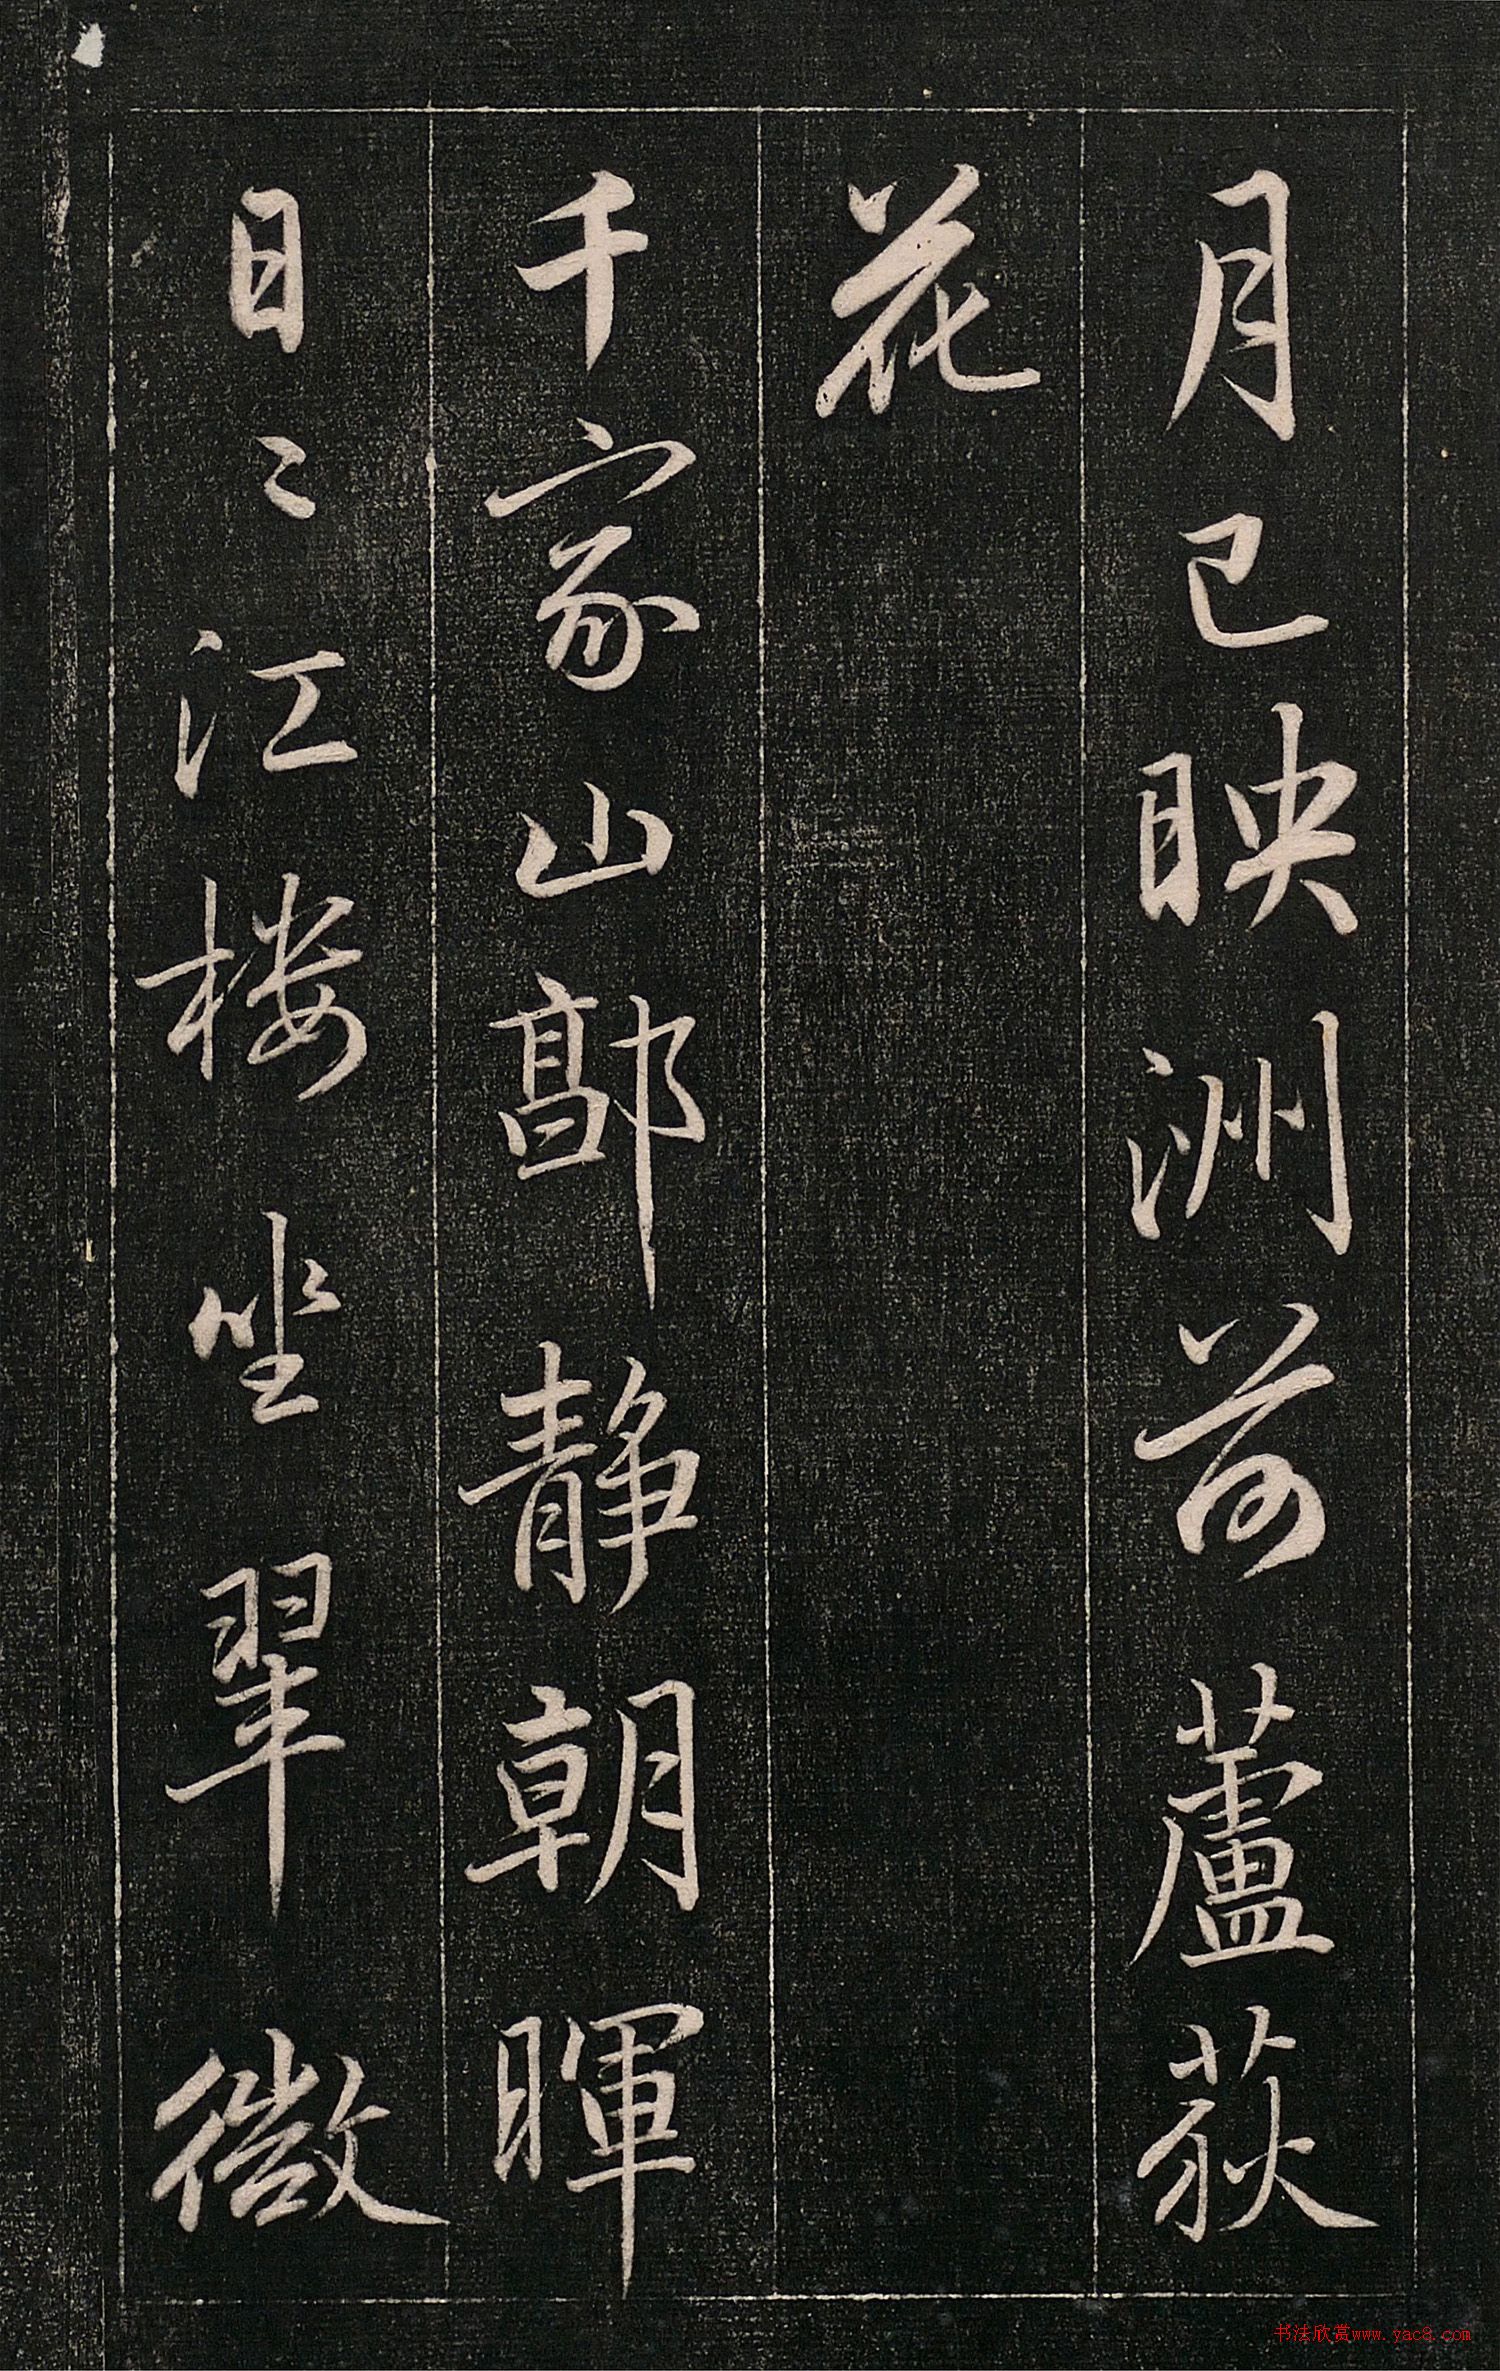 月已映洲前蘆荻
花
千家山郭靜朝暉
日〻江楼坐翠微
书法欣赏www.yac8.com